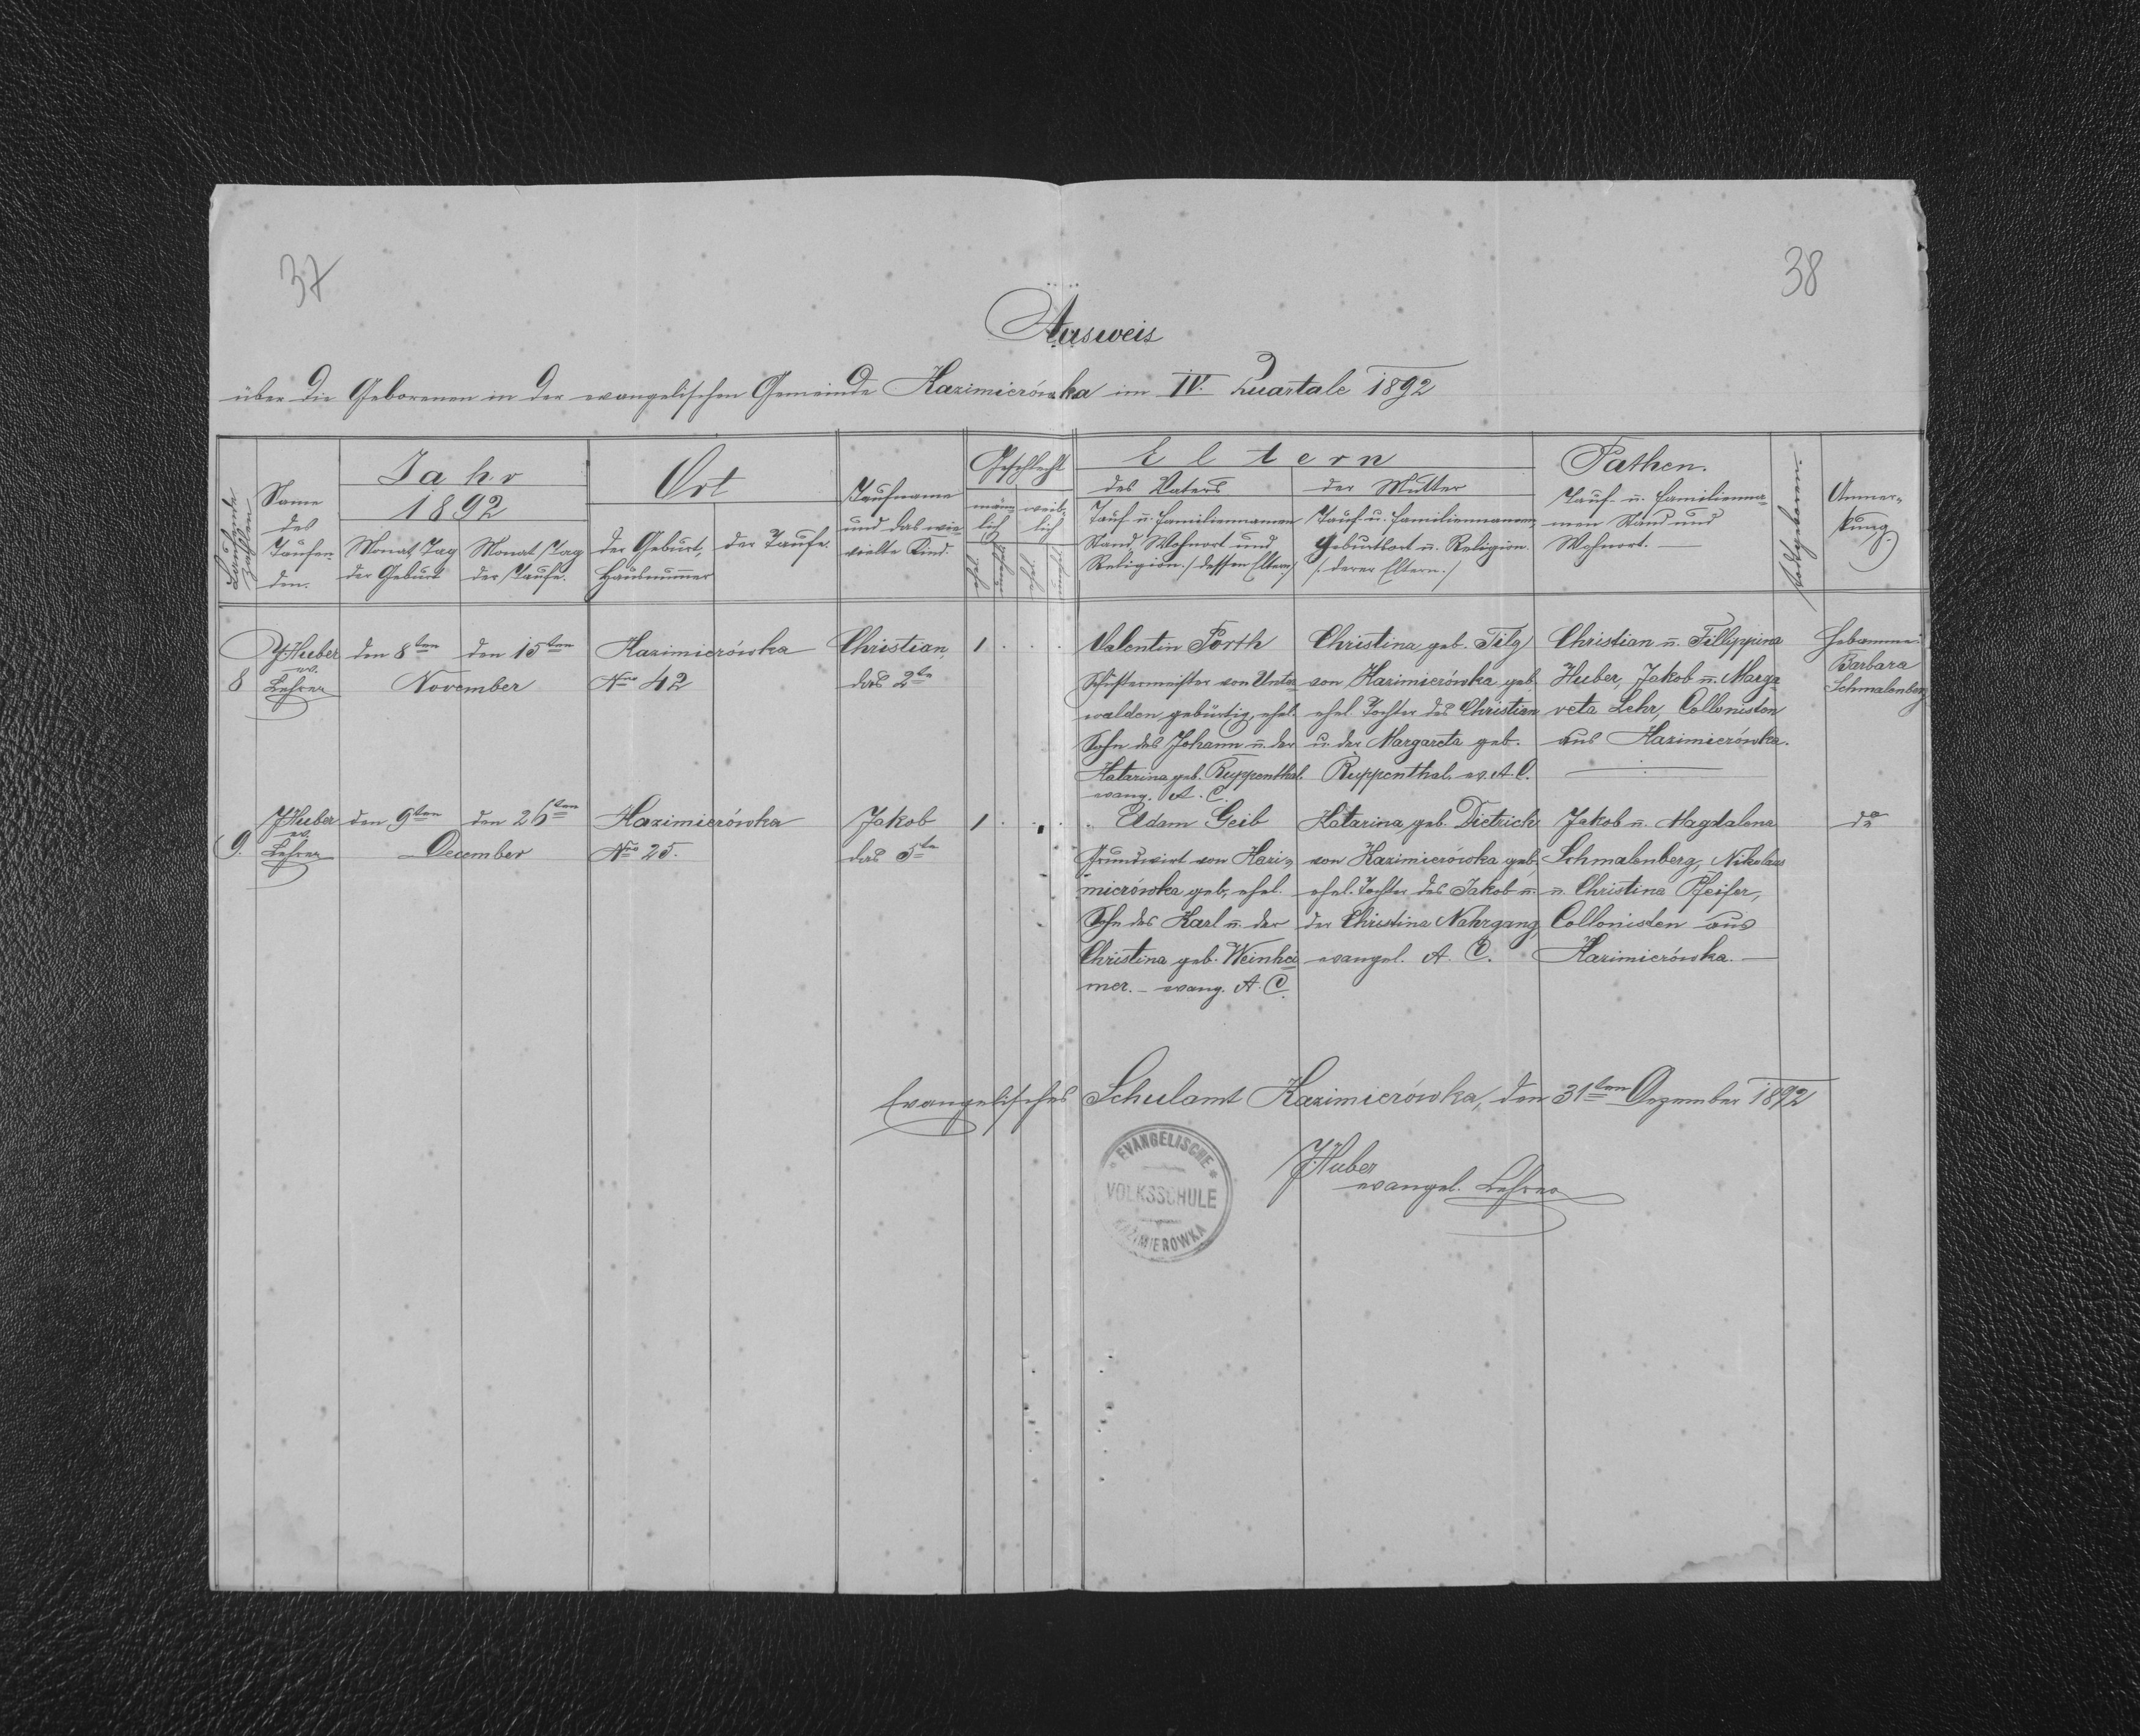 37
38
Ausweis
über die Geborenen in der evangelischen Gemeinde Kazimierówka im IV. Quartale 1892
Laufende
zahlen
Name
des
Taufen-
den.
Jahr
1892
Monat, Tag
der Geburt
Monat, Tag
der Taufe.
Ort
der Geburt,
Hausnummer
der Taufe.
Taufname
und das wie-
vielte Kind.
Geschlecht
männ-
lich
weib-
lich
ehel.
unehel.
ehel.
unehel.
Eltern
des Vaters
Tauf- u. Familiennamen
Stand, Wohnort und
Religion. /dessen Eltern/
der Mutter
Tauf- u. Familiennamen,
Geburtsort u. Religion.
/: deren Eltern./
Pathen.
Tauf- u. Familienna-
men Stand und
Wohnort. —
todtgeboren
Anmer-
kung.
8
JHuber
ev.
Lehrer
den 8ten
den 15ten
November
Kazimierówka
Nro 42
Christian,
das 2te
1
Valentin Porth
Schustermeister von Unter-
walden, gebürtig, ehel.
Sohn des Johann u. der
Katarina geb. Ruppenthal.
evang. A. C.
Christina geb. Filg
von Kazimierówka geb.
ehel. Tochter des Christian
u. der Margareta geb.
Ruppenthal. ev. A. C.
Christian u. Fillippina
Huber, Jakob u. Marga-
reta Lehr, Collonisten
aus Kazimierówka.
Hebamme:
Barbara
Schmalenberg
9.
JHuber
ev.
Lehrer
den 9ten
den 26ten
December
Kazimierówka
Nro 25.
Jakob
das 5te
1
Adam Geib
Grundwirt von Kazi-
mierówka geb., ehel.
Sohn des Karl u. der
Christina geb. Weinhei-
mer. – evang. A. C.
Katarina geb. Dietrich
von Kazimierówka geb.
ehel. Tochter des Jakob u.
der Christina Nahrgang,
evangel. A. C.
Jakob u. Magdalena
Schmalenberg, Nikolaus
u. Christina Pfeifer,
Collonisten aus
Kazimierówka. —
dto
Evangelisches Schulamt Kazimierówka, den 31ten Dezember 1892
EVANGELISCHE
VOLKSSCHULE
KAZIMIERÓWKA
JHuber
evangel. Lehrer